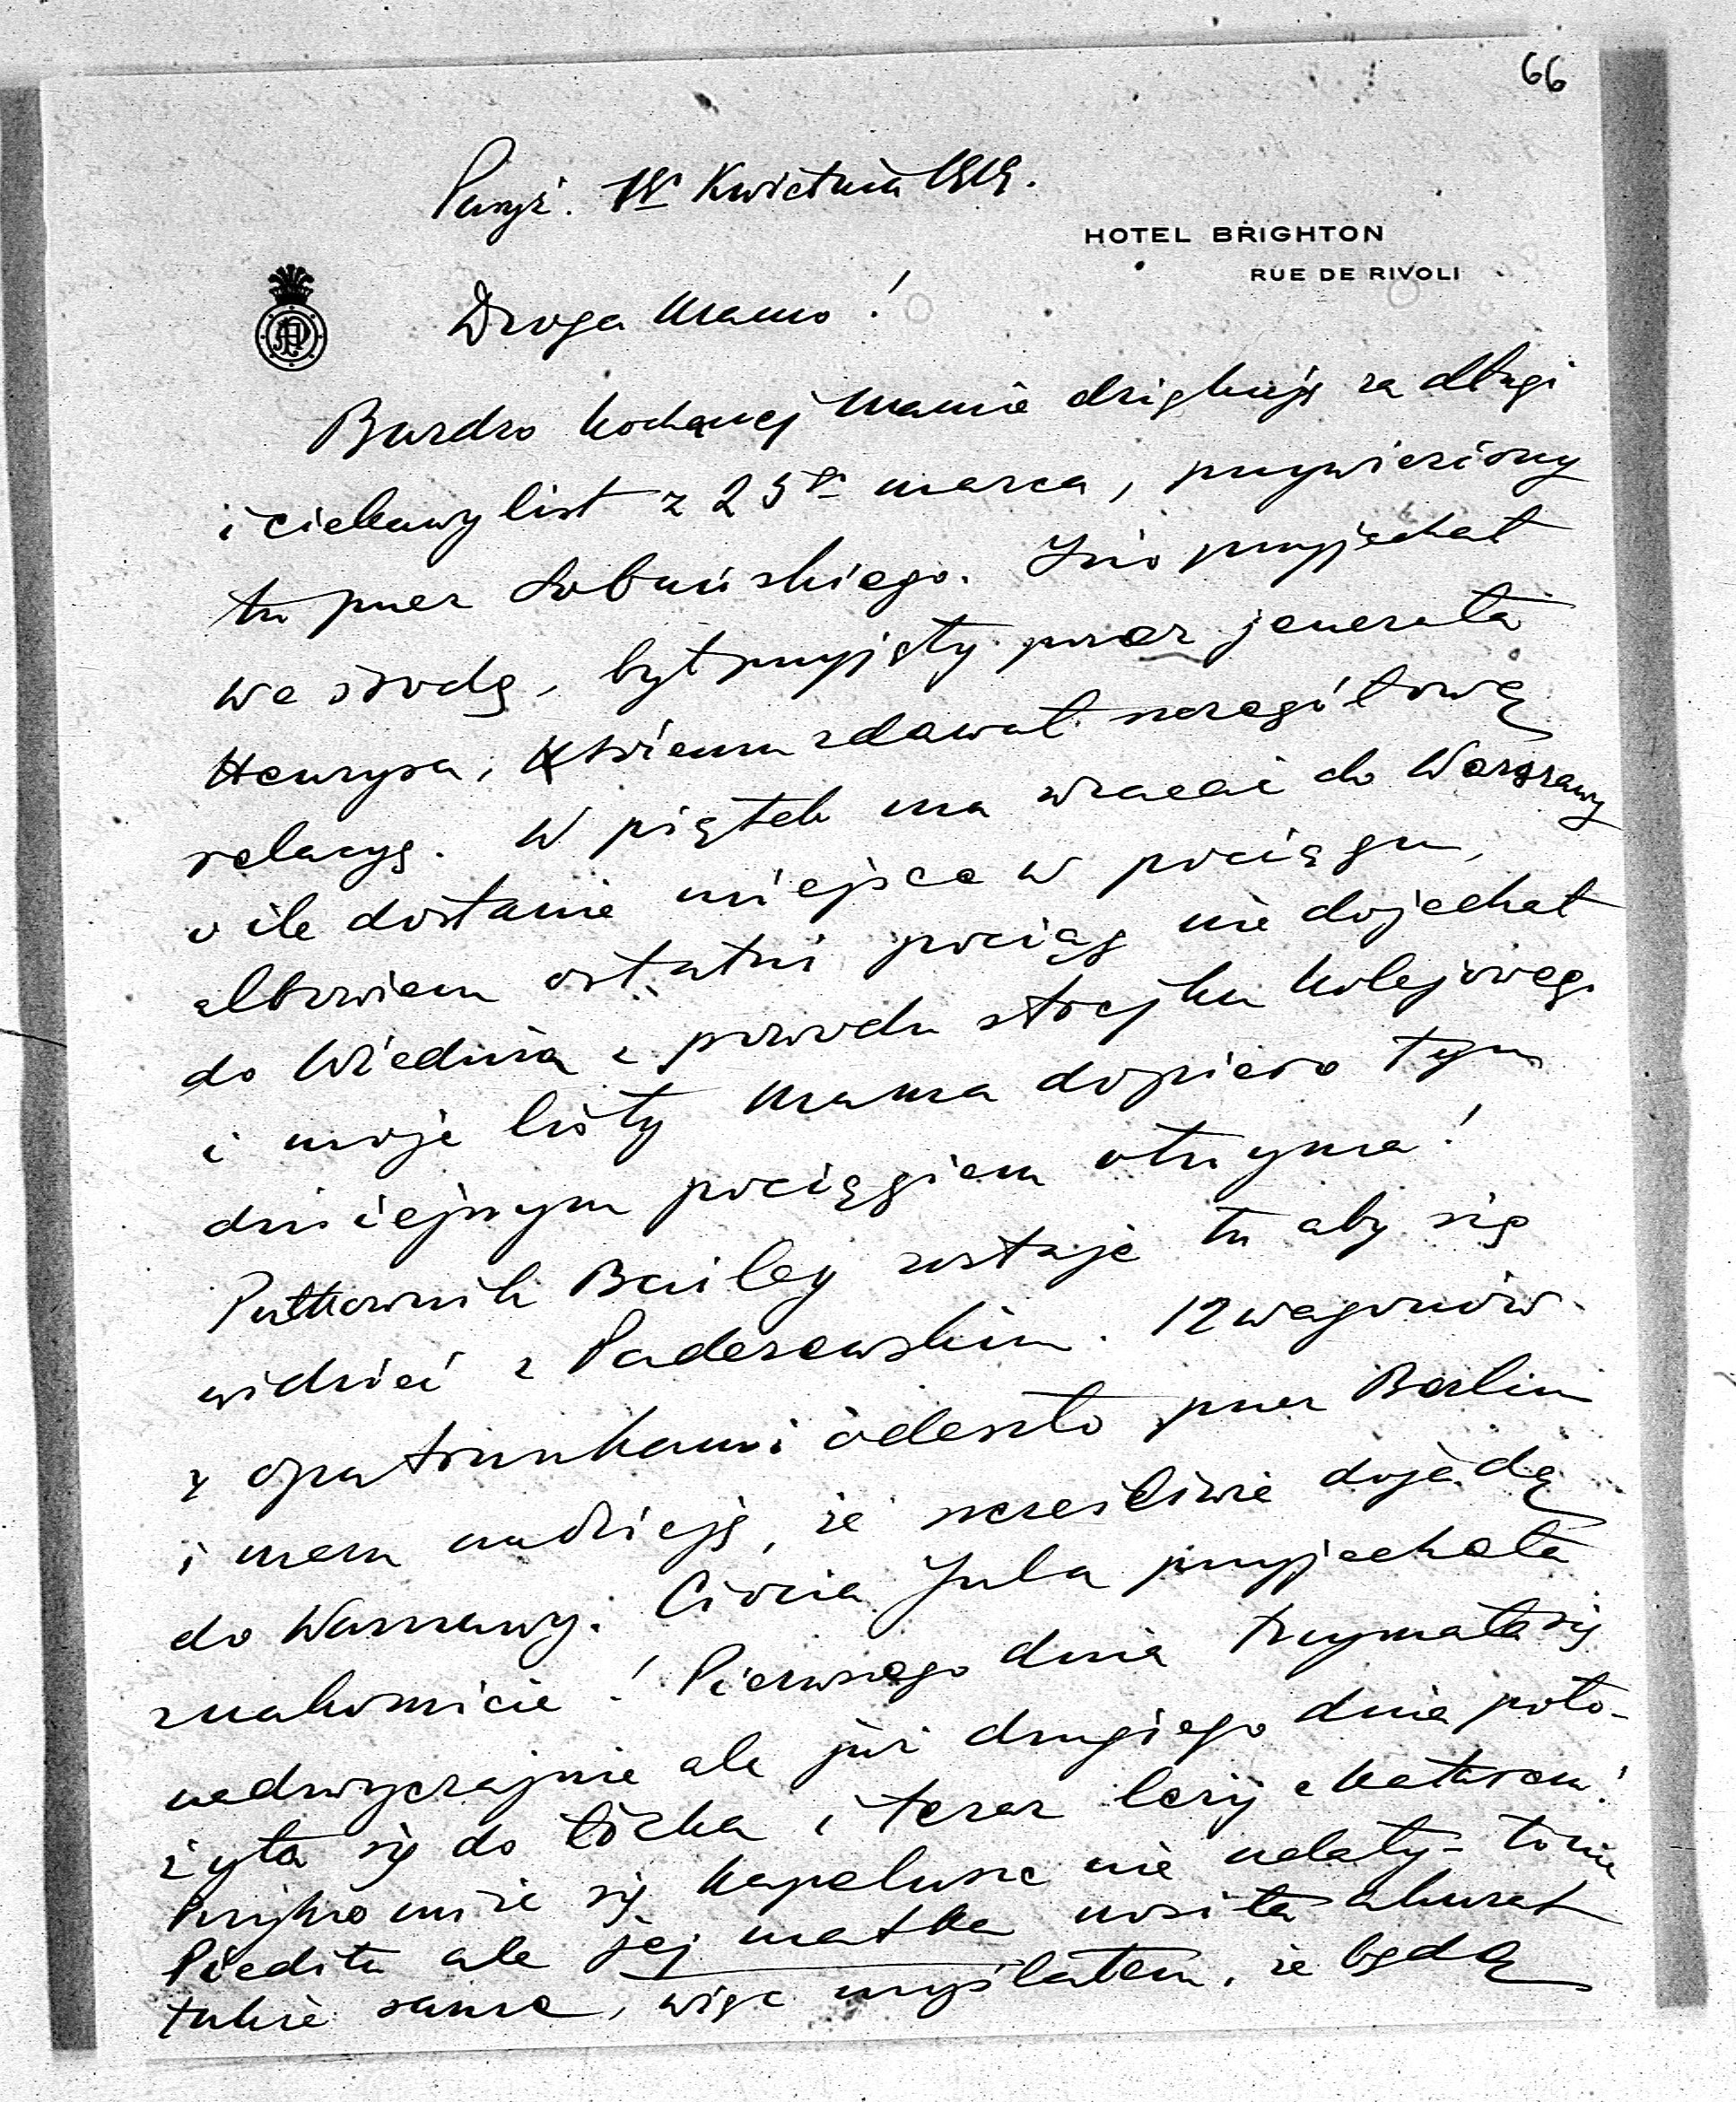 66
Paryż. 1go Kwietnia 1919.
HOTEL BRIGHTON
RUE DE RIVOLI
Droga Mamo!
Bardzo kochanej Mamie dziękuję za długi
i ciekawy list z 25go marca, przywieziony
tu przez Łobuńskiego. Iżio przyjechał
we środę, był przyjęty przez jenerała
Henrysa, któremu zdawał szczegółową
relacyę. W piątek ma wracać do Warszawy
o ile dostanie miejsce w pociągu,
albowiem ostatni pociąg nie dojechał
do Wiednia z powodu strejku kolejowego
i moje listy Mama dopiero tym
dzisiejszym pociągiem otrzyma!
Pułkownik Bailey zostaje tu aby się
widzieć z Paderewskim. 12 wagonów
z opatrunkami odeszło przez Berlin
i mam nadzieję, że szczęśliwie dojadą
do Warszawy. Ciocia Jula przyjechała
znakomicie! Pierwszego dnia trzymała się
nadzwyczajnie ale już drugiego dnia poło-
żyła się do łóżka i teraz leży z Katarem!
Przykro mi że się kapelusze nie udały - to nie
Piedita ale jej matka nosiła akurat
takie same, więc myślałem, że będą